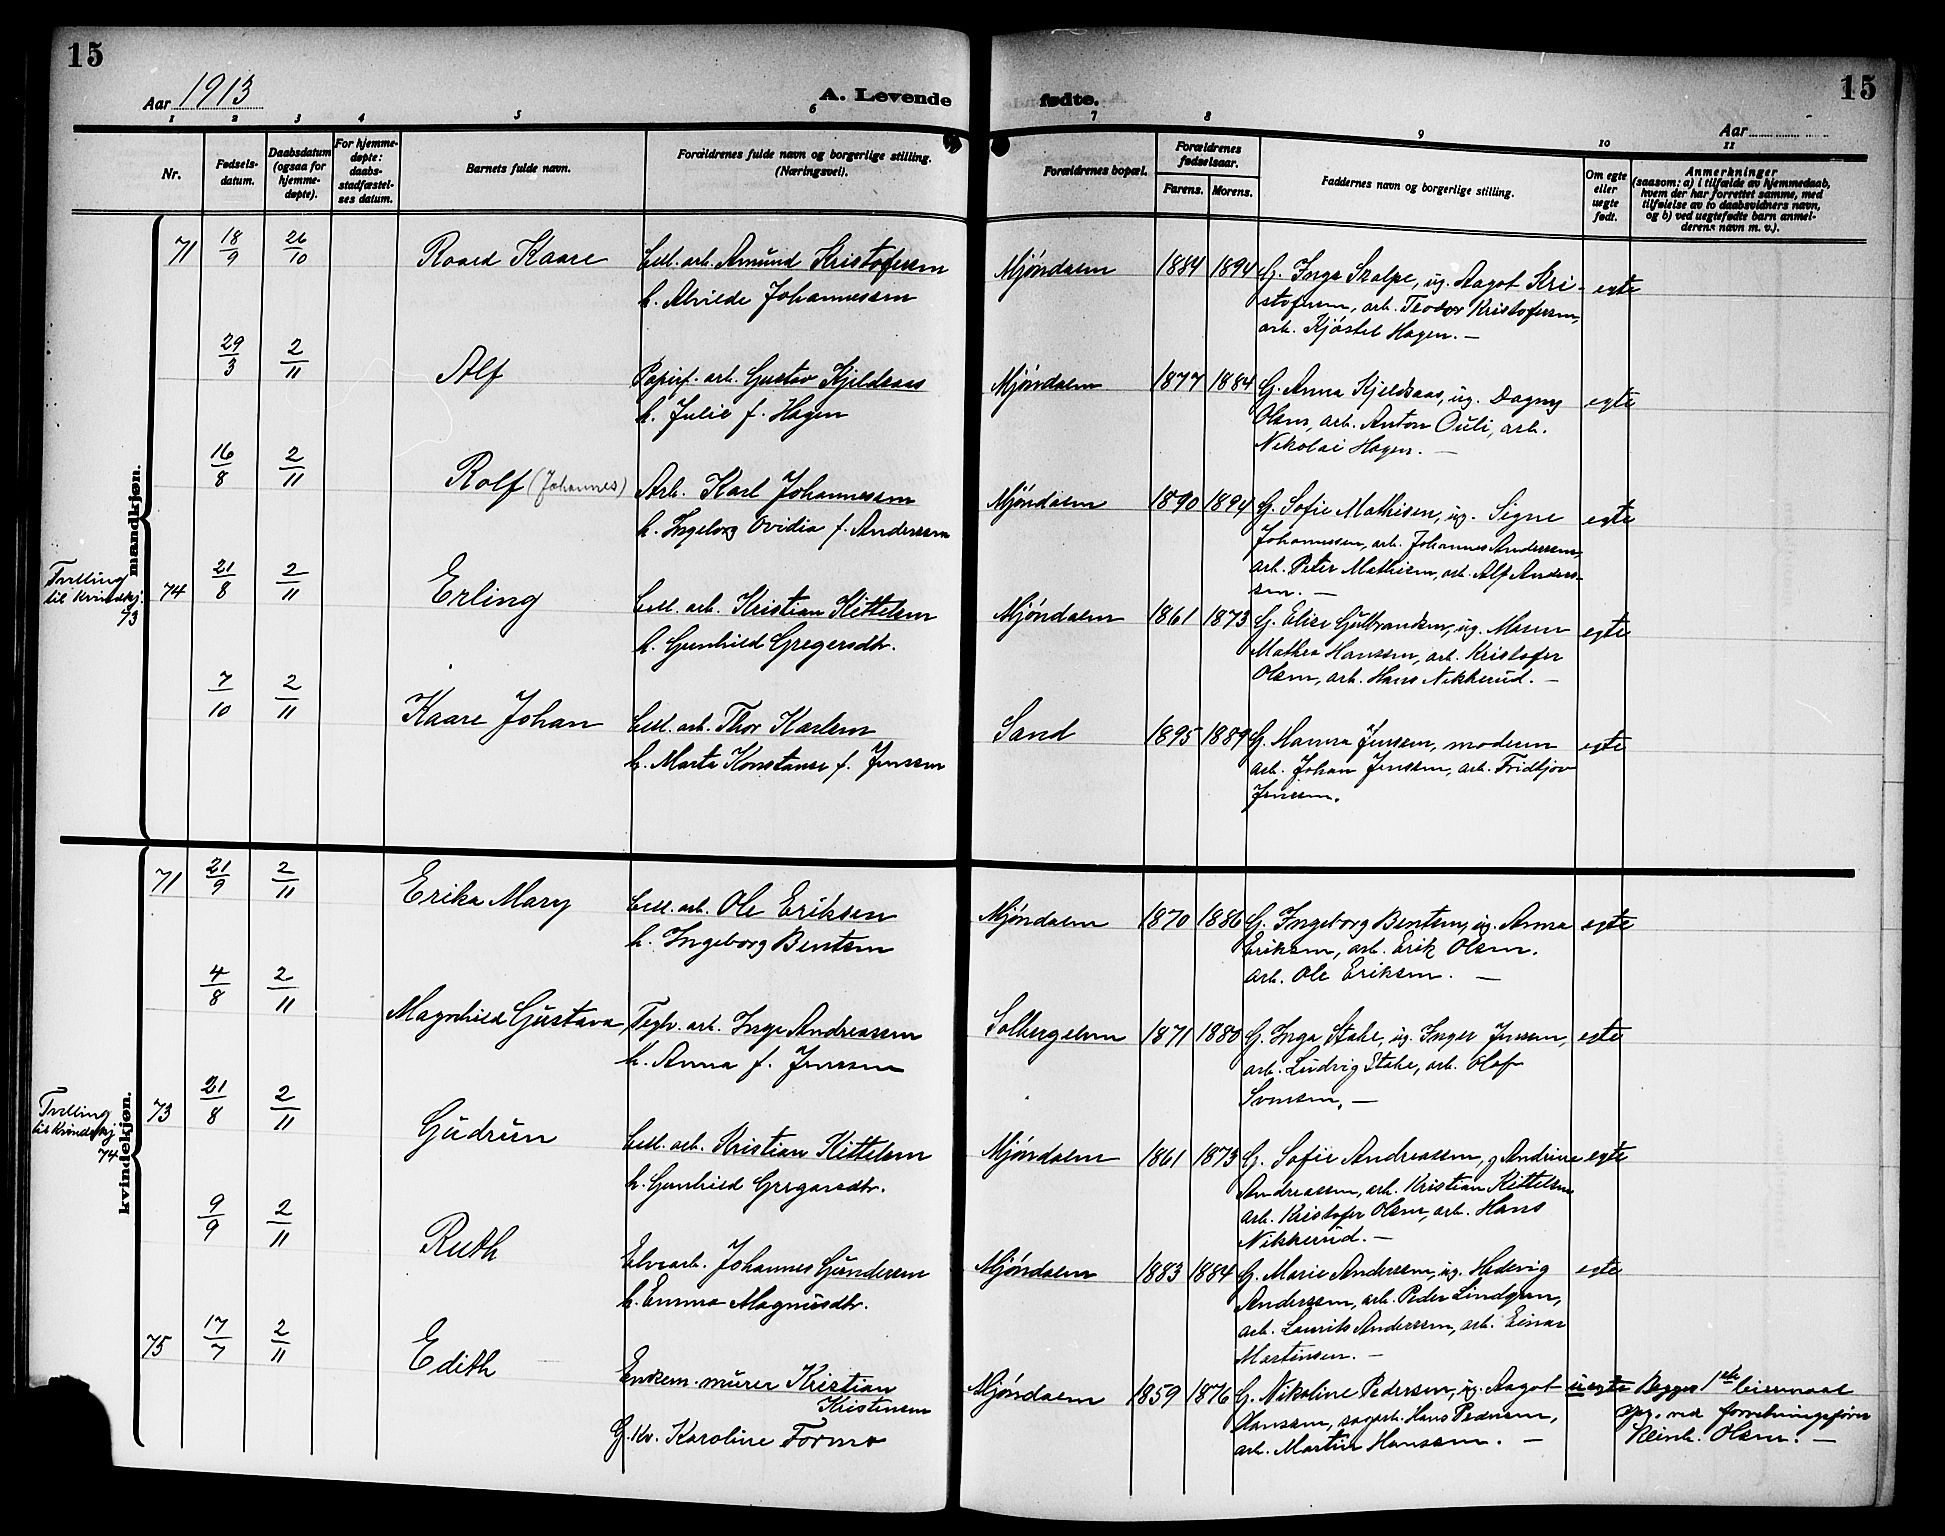 15
15
Aar 1913
A. Levende fødte.
Aar
1 2 3 4 5 6 7 8 9 10 11
Nr.
Fødsels-
datum.
Daabsdatum
(ogsaa for
hjemme-
døpte).
For hjemme-
døpte:
daabs-
stadfæstel-
ses datum.
Barnets fulde navn.
Forældrenes fulde navn og borgerlige stilling.
(Næringsvei).
Forældrenes bopæl.
Forældrenes
fødselsaar.
Farens. Morens.
Faddernes navn og borgerlige stilling.
Om egte
eller
uegte
født.
Anmerkninger
(saasom: a) i tilfælde av hjemmedaab,
hvem der har forrettet samme, med
tilføielse av to daabsvidners navn,
og b) ved uegtefødte barn anmel-
derens navn m. v.).
mandkjøn.
71 18/9 26/10 Roard Kaare Cell. arb. Amund Kristofersen
h. Alvilde Johannessen
Mjøndalen 1884 1894 G. Inga Skalpe, ug. Aagot Kri-
stofersen, arb. Teodor Kristofersen,
arb. Kjøstel Hagen. —
egte
29/3 2/11 Alf Papirf. arb. Gustav Kjeldsaas
h. Julie f. Hagen
Mjøndalen 1877 1884 G. Anna Kjeldsaas, ug. Dagny
Olsen, arb. Anton Ouli, arb.
Nikolai Hagen. —
egte
16/8 2/11 Rolf (Johannes) Arb. Karl Johannessen
h. Ingeborg Ovidia f. Anderssen
Mjøndalen 1890 1894 G. Sofie Mathisen, ug. Signe
Johannessen, arb. Johannes Anderssen,
arb. Peter Mathisen, arb. Alf Anders-
sen. —
egte
Tvilling
til Kvindekj.
73
74 21/8 2/11 Erling Cell. arb. Kristian Kittelsen
h. Gunhild Gregersdtr.
Mjøndalen 1861 1873 G. Elise Gulbrandsen, ug. Maren
Mathea Hanssen, arb. Kristofer
Olsen, arb. Hans Nikkerud. —
egte
7/10 2/11 Kaare Johan Cell. arb. Thor Karlsen
h. Marta Konstanse f. Jenssen
Sand 1895 1889 G. Hanna Jenssen, moderen
arb. Johan Jenssen, arb. Fridtjov
Jenssen.
egte
kvindekjøn.
71 21/9 2/11 Erika Mary Cell. arb. Ole Eriksen
h. Ingeborg Bentsen
Mjøndalen 1870 1886 G. Ingeborg Bentsen, ug. Anna
Eriksen, arb. Erik Olsen.
arb. Ole Eriksen. —
egte
4/8 2/11 Magnhild Gustava Teglv. arb. Inge Andreassen
h. Anna f. Jenssen
Solbergelven 1871 1880 G. Inga Stake, ug. Inger Jenssen,
arb. Ludvig Stake, arb. Olaf
Svensen. —
egte
Tvilling
til Kvindekj
74
73 21/8 2/11 Gudrun Cell. arb. Kristian Kittelsen
h. Gunhild Gregersdtr.
Mjøndalen 1861 1873 G. Sofie Andreassen, g Andrine
Andreassen, arb. Kristian Kittelsen
arb. Kristofer Olsen, arb. Hans
Nikkerud. —
egte
9/9 2/11 Ruth Elvearb. Johannes Gundersen
h. Emma Magnusdtr.
Mjøndalen 1883 1884 G. Marie Anderssen, ug. Hedevig
Anderssen, arb. Peder Lindgren,
arb. Laurits Anderssen, arb. Einar
Martinsen. —
egte
75 17/7 2/11 Edith Enkem. murer Kristian
Kristensen
G. Kv. Karoline Formo
Mjøndalen 1859 1876 G. Nikoline Pedersen, ug. Aagot
Hanssen, sagarb. Hans Pedersen,
arb. Martin Hanssen. —
uegte Begges 1ste leiermaal
opg. ved forretningsfører
Reinh. Olsen. —